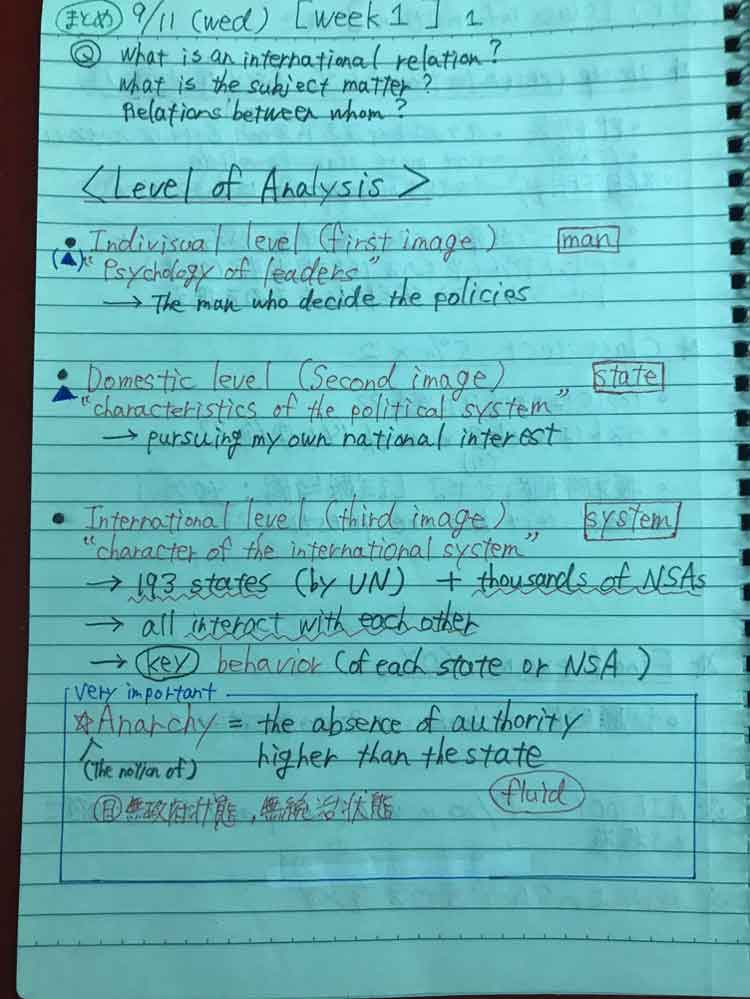 まとめ 9/11 (wed) [week 1] 1
Q What is an international relation?
What is the subject matter?
Relations between whom?
<Level of Analysis>
• Indivisual level (first image) man
(▲)"Psychology of leaders"
→ The man who decide the policies
• Domestic level (Second image) state
▲"characteristics of the political system"
→ pursuing my own national interest
• International level (third image) system
"character of the international system"
→ 193 states (by UN) + thousands of NSAs
→ all interact with each other
→ key behavior (of each state or NSA)
very important
☆Anarchy = the absence of authority
(The notion of) higher than the state
fluid
(日)無政府状態, 無統治状態